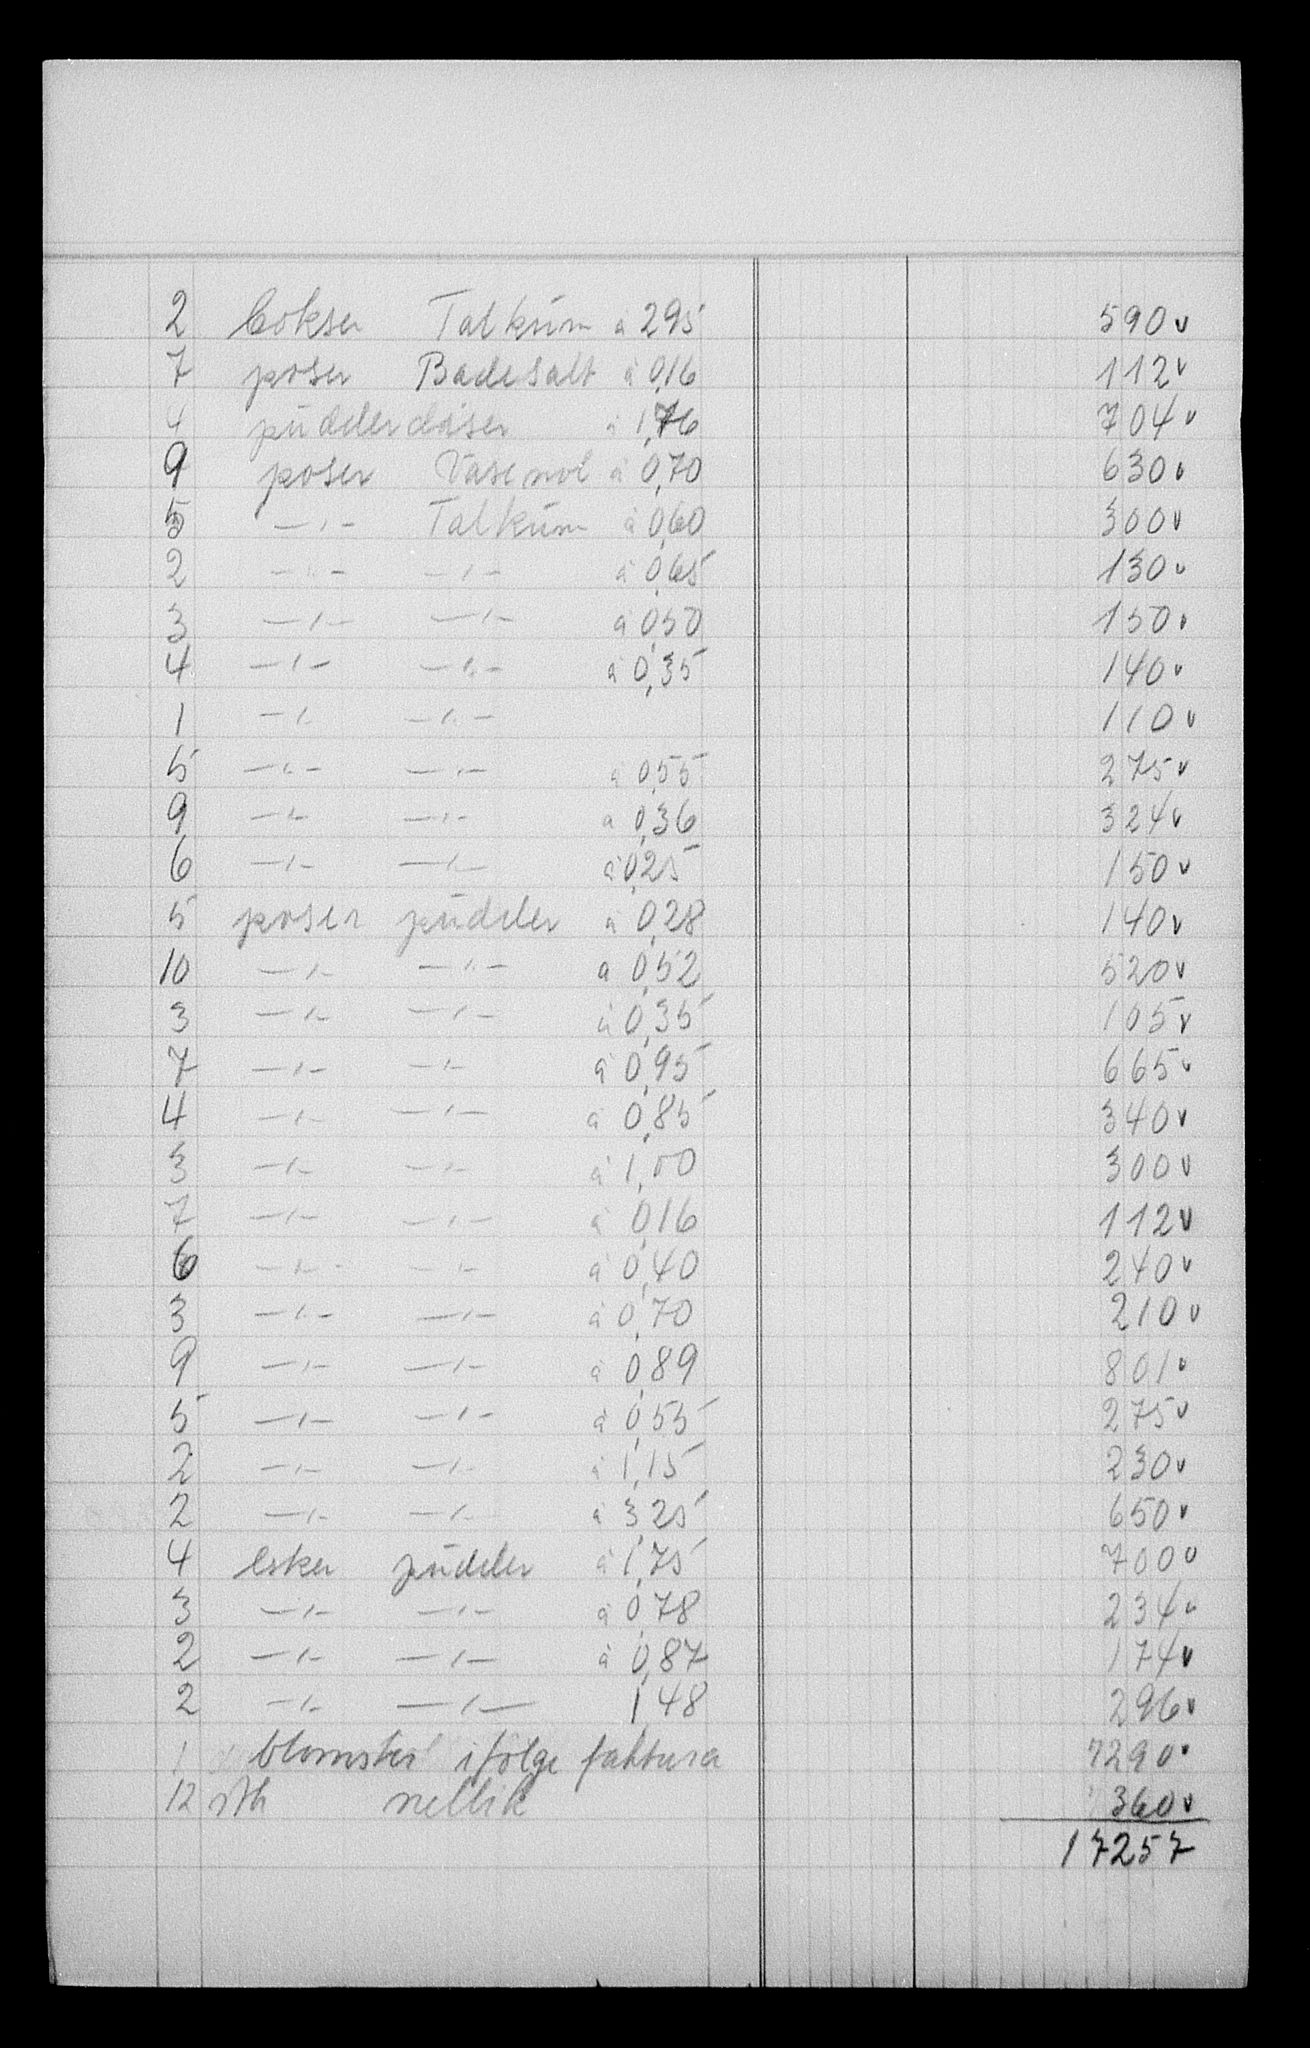 2 bokser Talkum a 295 590 v
7 poser Badesalt à 0,16 112 v
4 pudderdåser à 1,76 704 v
9 poser Vasenol à 0,70 630 v
5 -"- Talkum à 0,60 300 v
2 -"- -"- à 0,65 130 v
3 -"- -"- à 0,50 150 v
4 -"- -"- à 0,35 140 v
1 -"- -"- 110 v
5 -"- -"- à 0,55 275 v
9 -"- -"- a 0,36 324 v
6 -"- -"- à 0,25 150 v
5 poser pudder à 0,28 140 v
10 -"- -"- a 0,52 520 v
3 -"- -"- à 0,35 105 v
7 -"- -"- à 0,95 665 v
4 -"- -"- a 0,85 340 v
3 -"- -"- à 1,00 300 v
7 -"- -"- à 0,16 112 v
6 -"- -"- à 0,40 240 v
3 -"- -"- à 0,70 210 v
9 -"- -"- à 0,89 801 v
5 -"- -"- à 0,55 275 v
2 -"- -"- à 1,15 230 v
2 -"- -"- à 3,25 650 v
4 esker pudder à 1,75 700 v
3 -"- -"- à 0,78 234 v
2 -"- -"- à 0,87 174 v
2 -"- -"- 1,48 296 v
1 blomster ifölge faktura 7290 v
12 stk nellik 360 v
17257